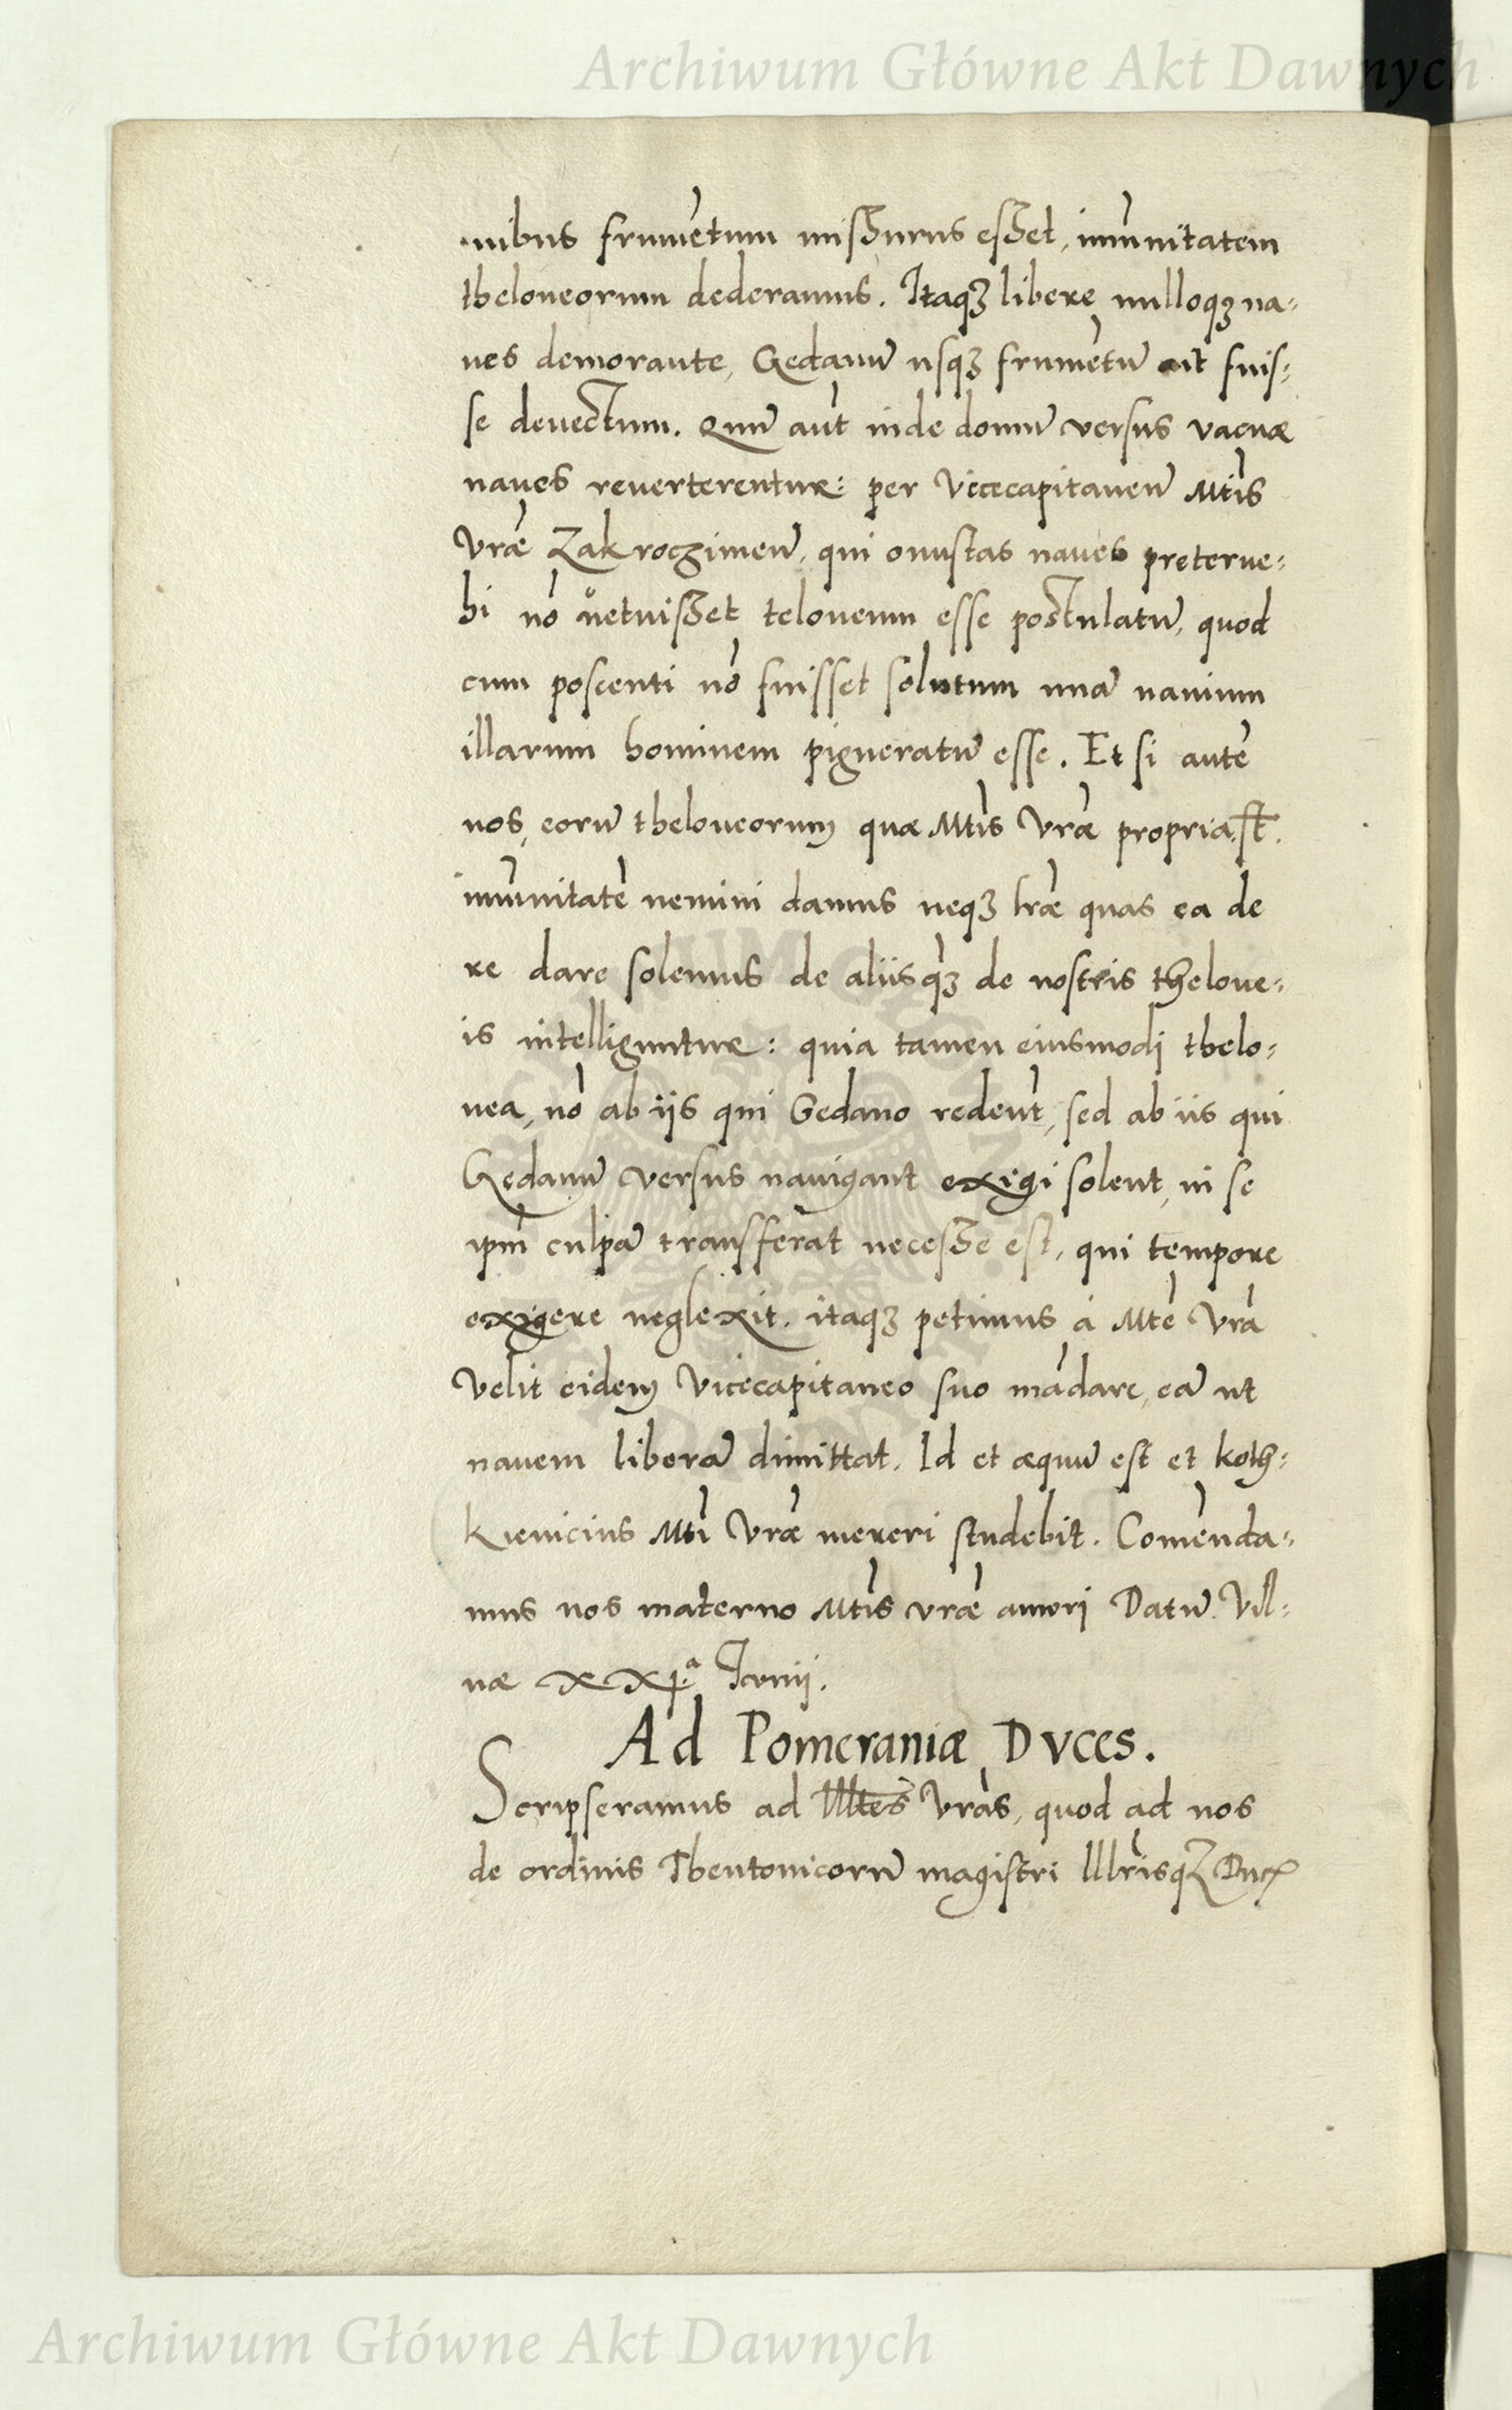 Archiwum Główne Akt Dawnych
nibus frumētum misurus esset, imūnitatem
theloneorum dederamus. Itaqȝ libere nulloqȝ na=
ues demorante, Gedanū usqȝ frumētū ait fuis=
se deuectum. Quū aūt inde domū versus vacuæ
naues reuerterentur: per Vicecapitaneū Mtis
Vræ Zakroczimen̄, qui onustas naues preterue=
hi nō uetuisset teloneum esse postulatū, quod
cum poscenti nō fuisset solutum unā nauium
illarum hominem pigneratū esse. Et si autē
nos, eorū theloneorum quæ Mtis Vræ propria st̄.
imūnitatē nemini damus neqȝ lræ quas ea de
re dare solemus de aliisqȝ de nostris thelone=
is intelliguntur: quia tamen eiusmodi thelo=
nea, nō ab iis qui Gedano redeūt, sed ab iis qui
Gedanū versus nauigant exigi solent, in se
ipm̄ culpā transferat necesse est, qui tempore
exigere neglexit. itaqȝ petimus á Mte Vra
Velit eidem Vicecapitaneo suo mādare, eā ut
nauem liberā dimittat. Id et æquū est et Koth=
kienicius Mti Vræ mereri studebit. Comēnda=
mus nos materno Mtis vræ amori Datū. Vil=
næ XXj.ª Iunij.
Ad Pomeraniæ Dvces.
Scripseramus ad Illtes Vras, quod ad nos
de ordinis Theutonicorū magistri Illrisqȝ
Archiwum Główne Akt Dawnych